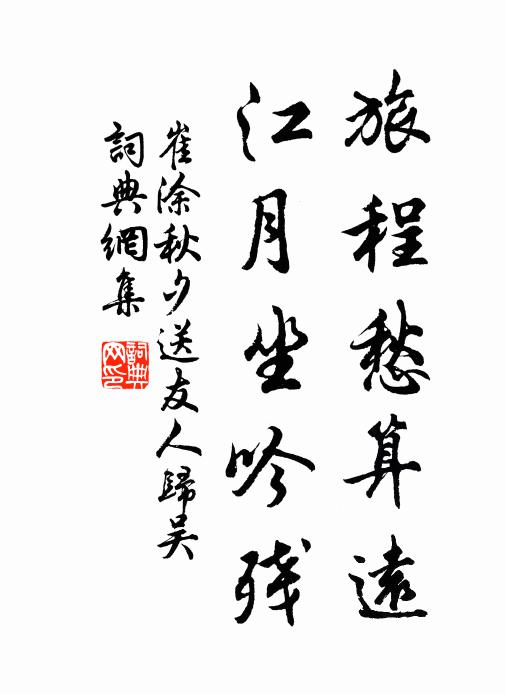 旅程愁算遠
江月坐吟残
崔涂秋夕送友人歸吴
詞典網集
詞典網印